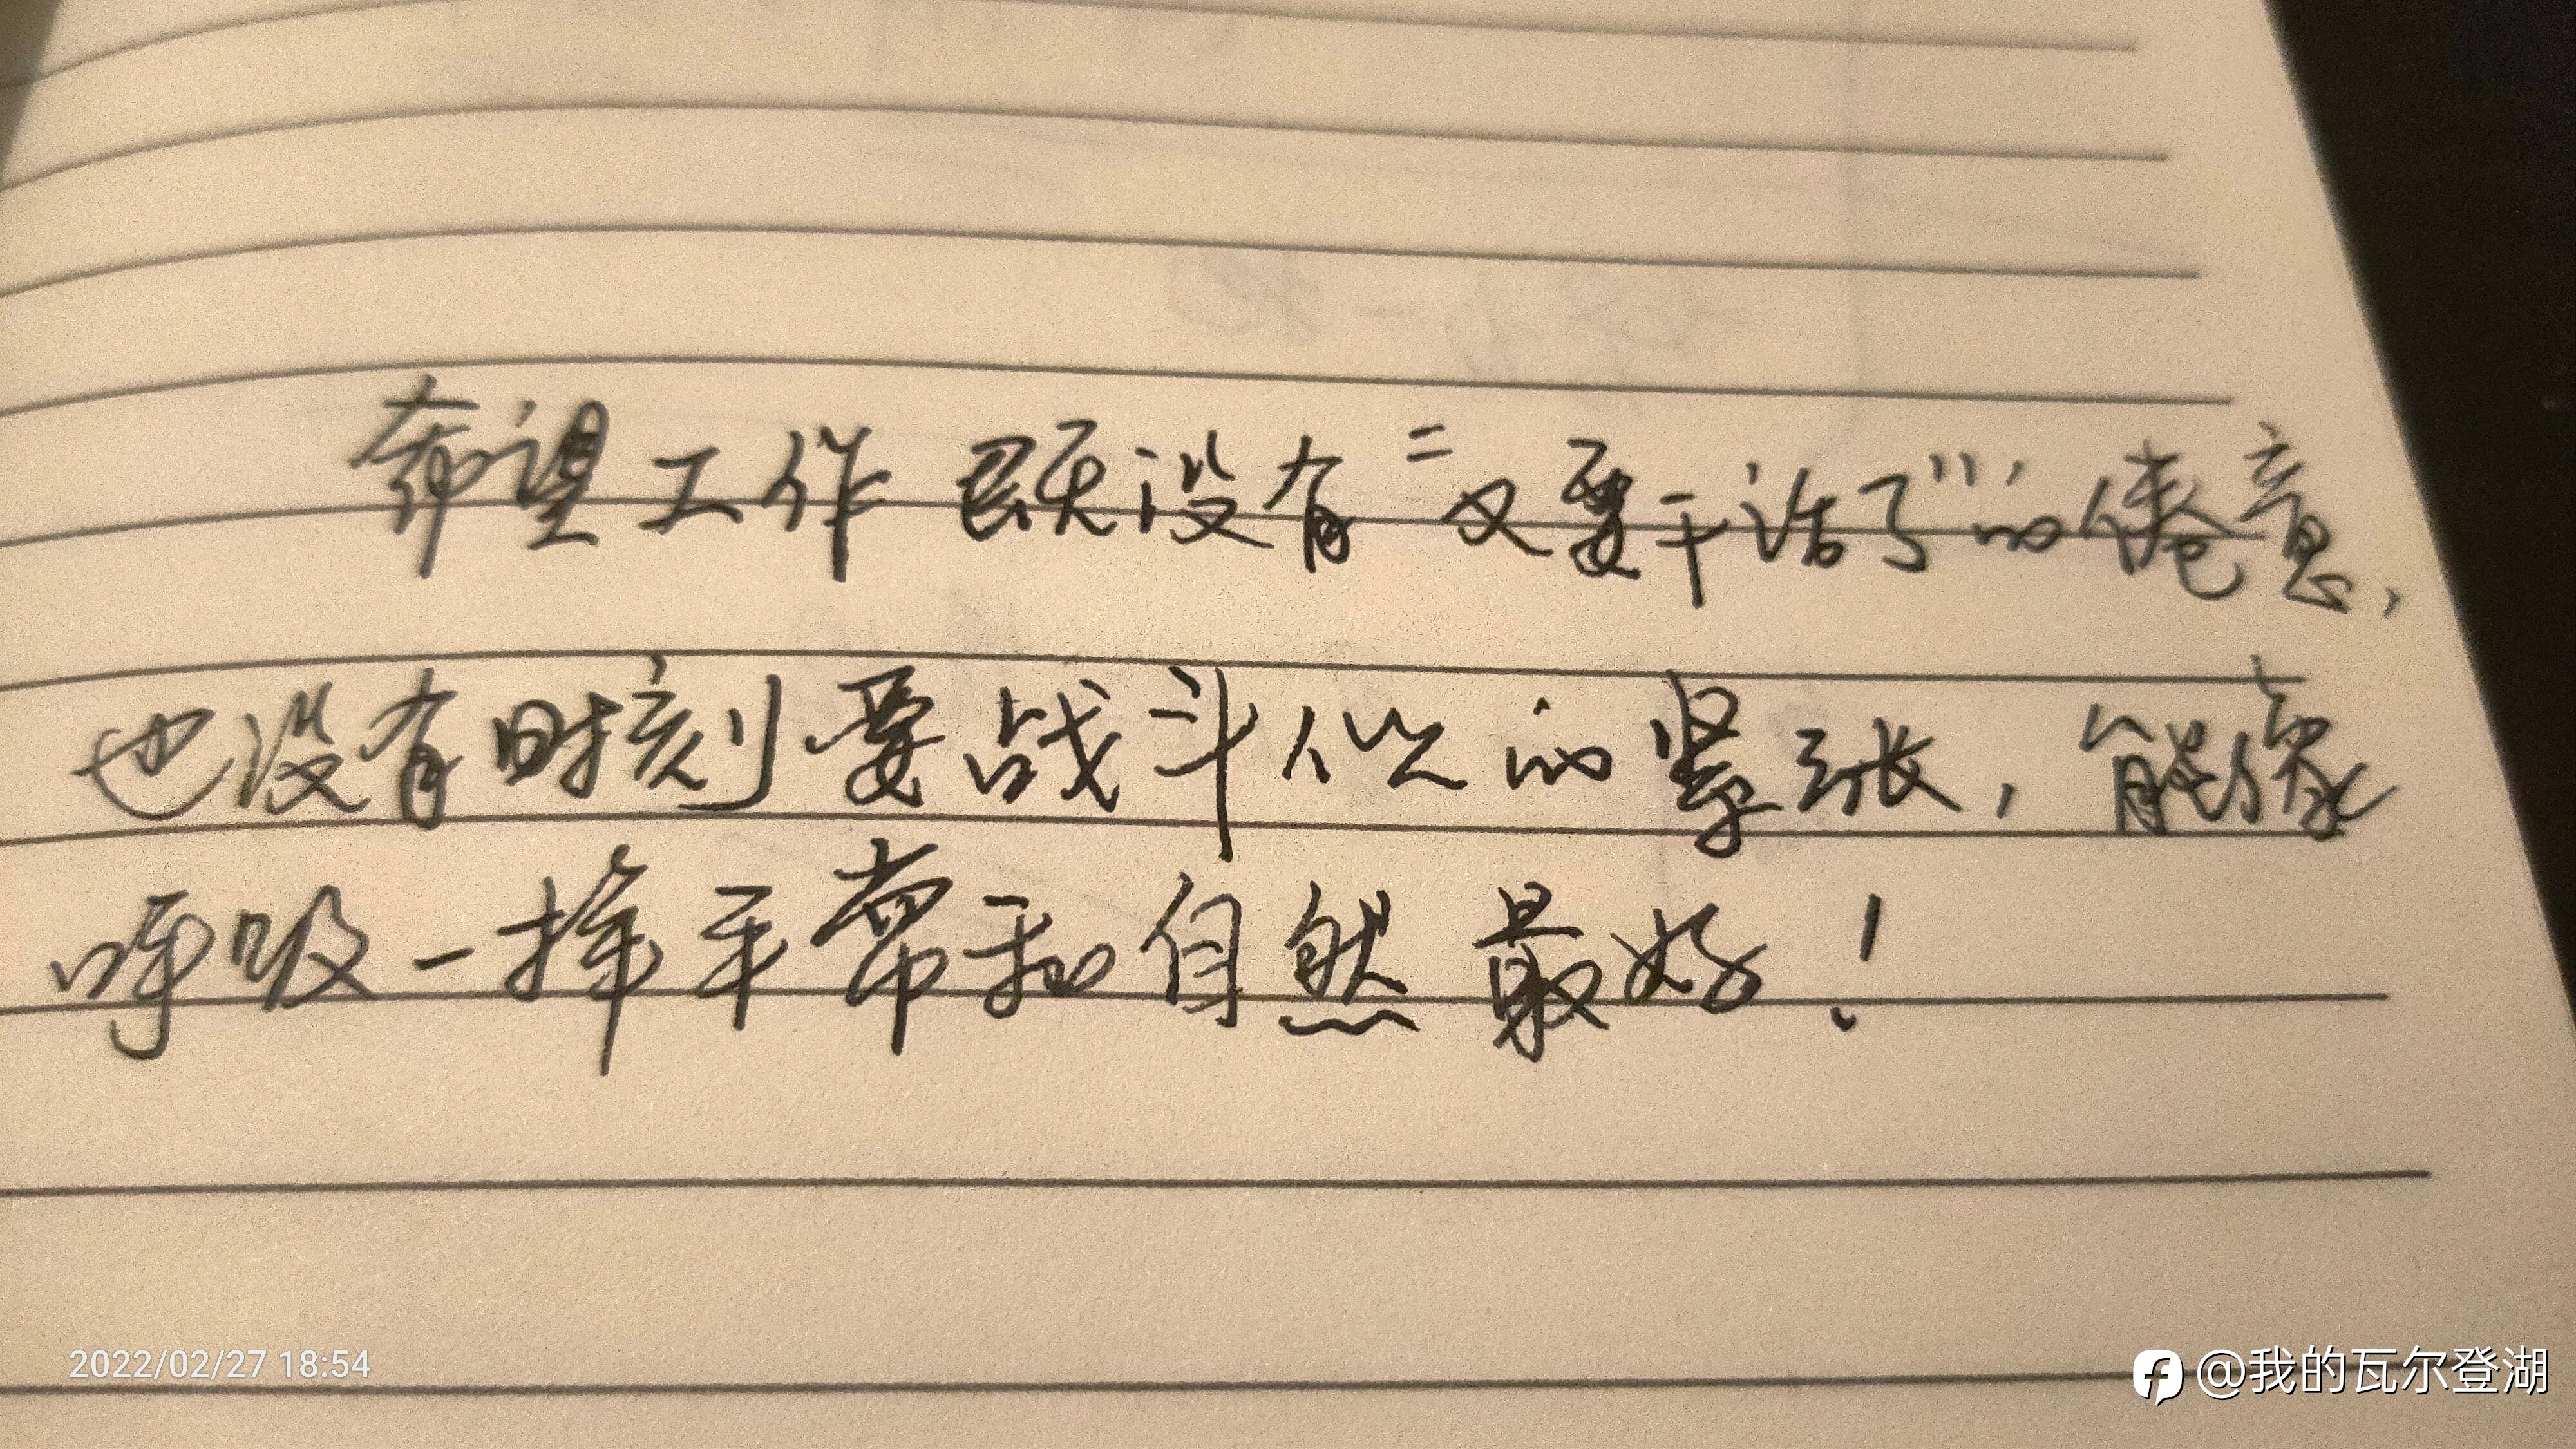 希望工作既没有“又要干活了”的倦意，
也没有时刻要战斗似的紧张，能像
呼吸一样平常和自然最好！
2022/02/27 18:54
@我的瓦尔登湖